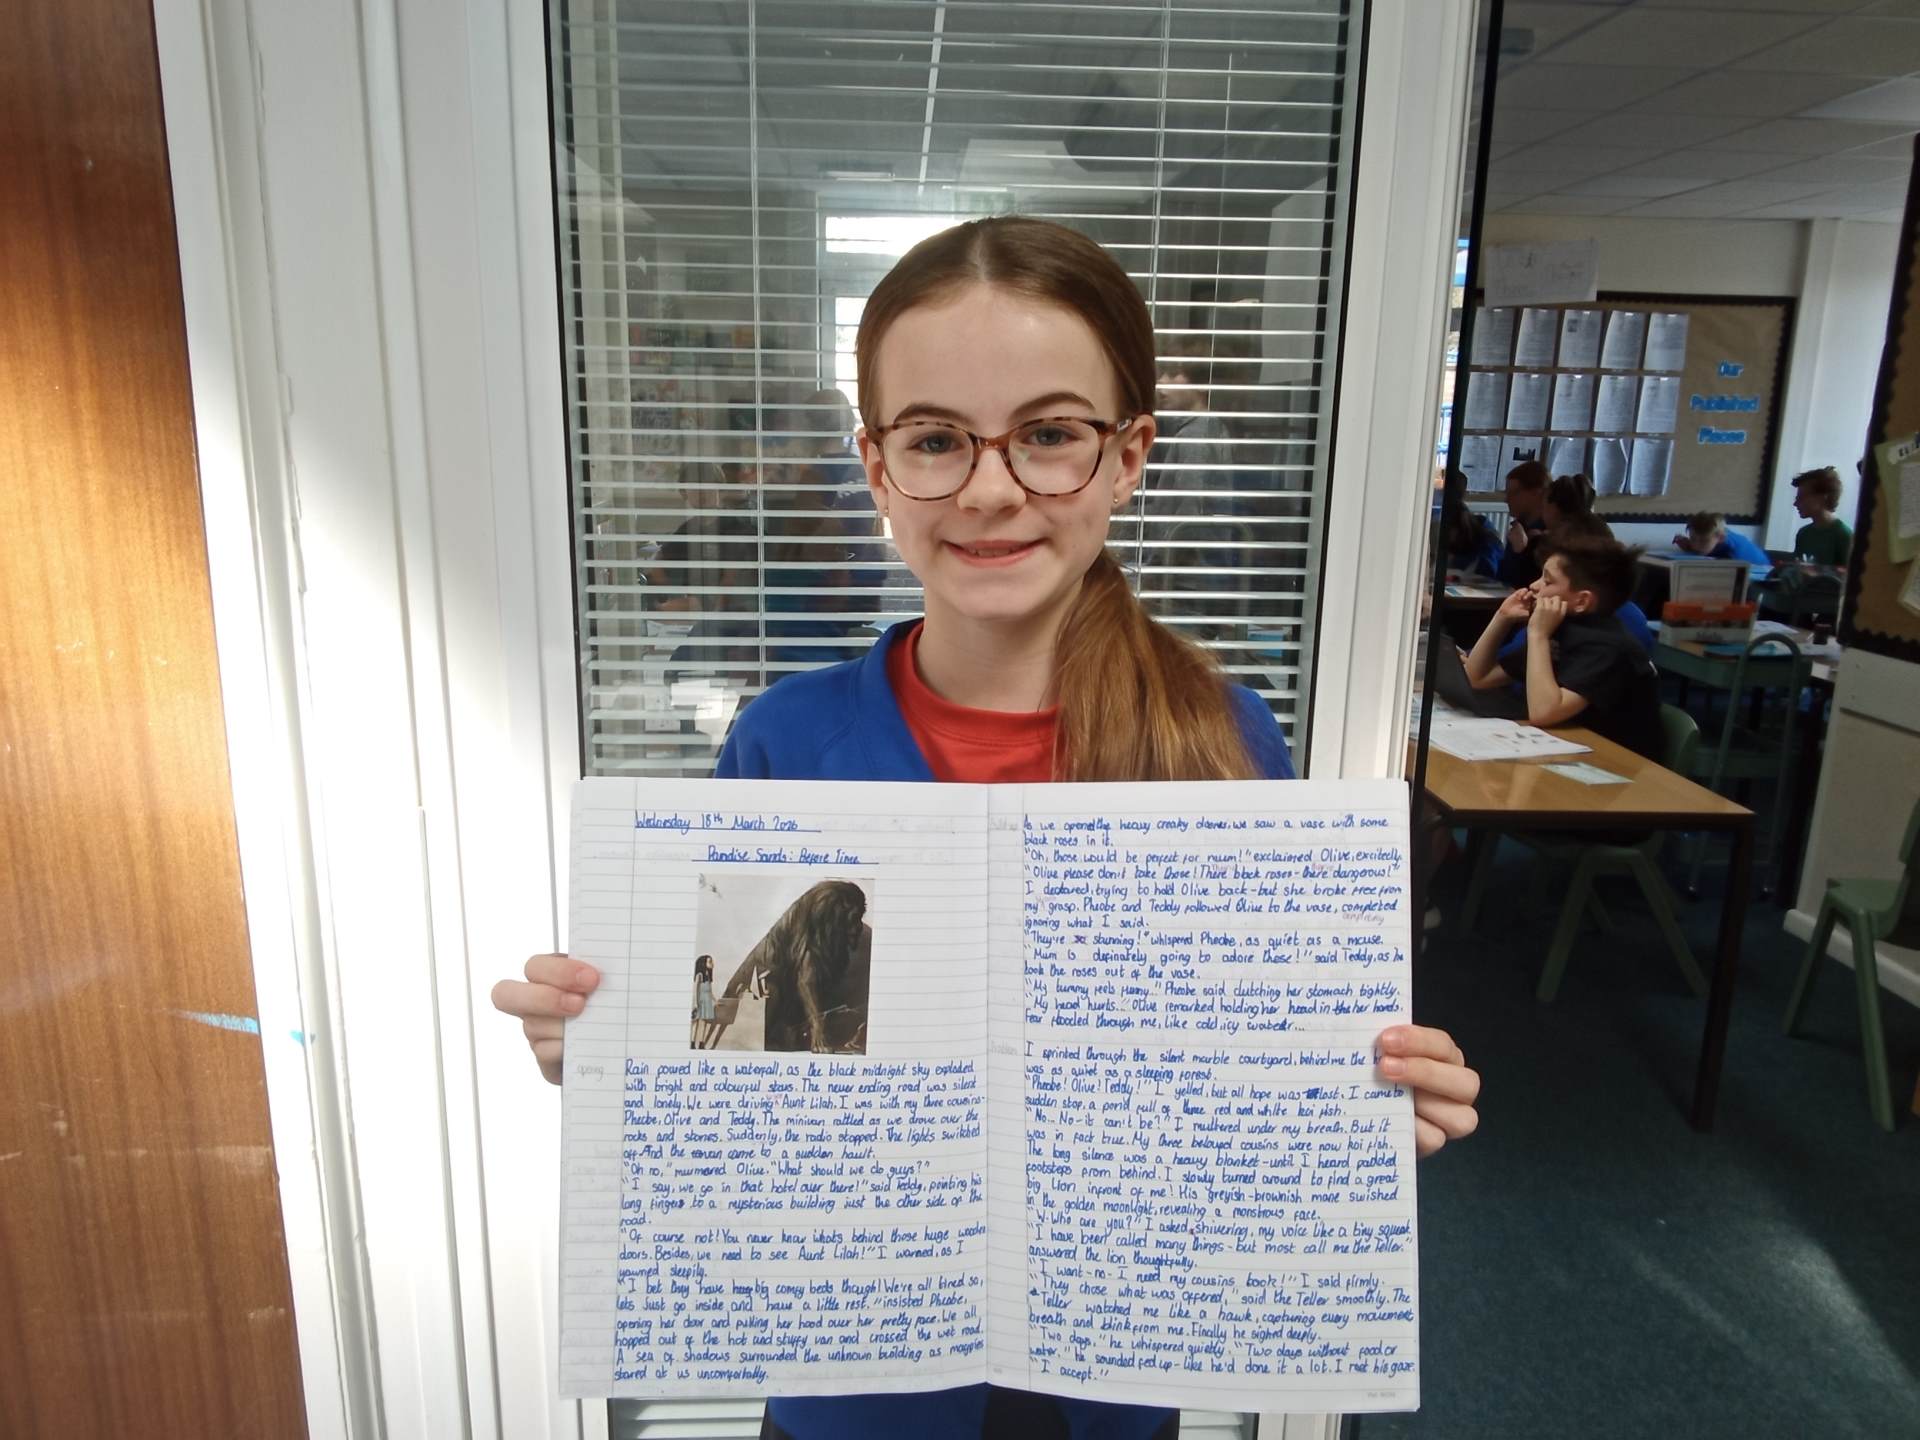 Wednesday 18th March 2026
Paradise Sands: Before Time
opening
Rain poured like a waterfall, as the black midnight sky exploded
with bright and colourful stars. The never ending road was silent
and lonely. We were driving Aunt Lilah. I was with my three cousins-
Pheobe, Olive and Teddy. The minivan rattled as we drove over the
rocks and stones. Suddenly, the radio stopped. The lights switched
off. And the van came to a sudden hault.
"Oh no," murmered Olive. "What should we do guys?"
"I say, we go in that hotel over there!" said Teddy, pointing his
long fingers to a mysterious building just the other side of the
road.
"Of course not! You never know whats behind those huge wooden
doors. Besides, we need to see Aunt Lilah!" I warned, as I
yawned sleepily.
"I bet they have big comfy beds though! We're all tired so,
lets just go inside and have a little rest," insisted Pheobe,
opening her door and pulling her hood over her pretty face. We all
hopped out of the hot and stuffy van and crossed the wet road.
A sea of shadows surrounded the unknown building as magpies
stared at us uncomfortably.
As we opened the heavy creaky doors, we saw a vase with some
black roses in it.
"Oh, those would be perfect for mum!" exclaimed Olive, excitedly.
"Olive please don't take those! There black roses - there dangerous!"
I declared, trying to hold Olive back - but she broke free from
my grasp. Pheobe and Teddy followed Olive to the vase, completed
completely
ignoring what I said.
"They're so stunning!" whispered Pheobe, as quiet as a mouse.
"Mum is definately going to adore these!" said Teddy, as he
took the roses out of the vase.
"My tummy feels funny..." Pheobe said clutching her stomach tightly.
"My head hurts..." Olive remarked holding her head in the her hands.
Fear flooded through me, like cold, icy water...
Problem
I sprinted through the silent marble courtyard, behind me the
was as quiet as a sleeping forest.
"Pheobe! Olive! Teddy!" I yelled, but all hope was lost. I came to
sudden stop. a pond full of three red and white koi fish.
"No... No - it can't be?" I muttered under my breath. But it
was in fact true. My three beloved cousins were now koi fish.
The long silence was a heavy blanket - until I heard padded
footsteps from behind. I slowly turned around to find a great
big Lion infront of me! His greyish-brownish mane swished
in the golden moonlight, revealing a monstrous face.
"W-Who are you?" I asked, shivering, my voice like a tiny squeak.
"I have been called many things - but most call me the Teller."
answered the lion thoughtfully.
"I want - no - I need my cousins back!" I said firmly.
"They chose what was offered," said the Teller smoothly. The
Teller watched me like a hawk, capturing every movement
breath and blink from me. Finally he sighed deeply.
"Two days," he whispered quietly. "Two days without food or
water." he sounded fed up - like he'd done it a lot. I met his gaze.
"I accept."
Our
Published
Pieces